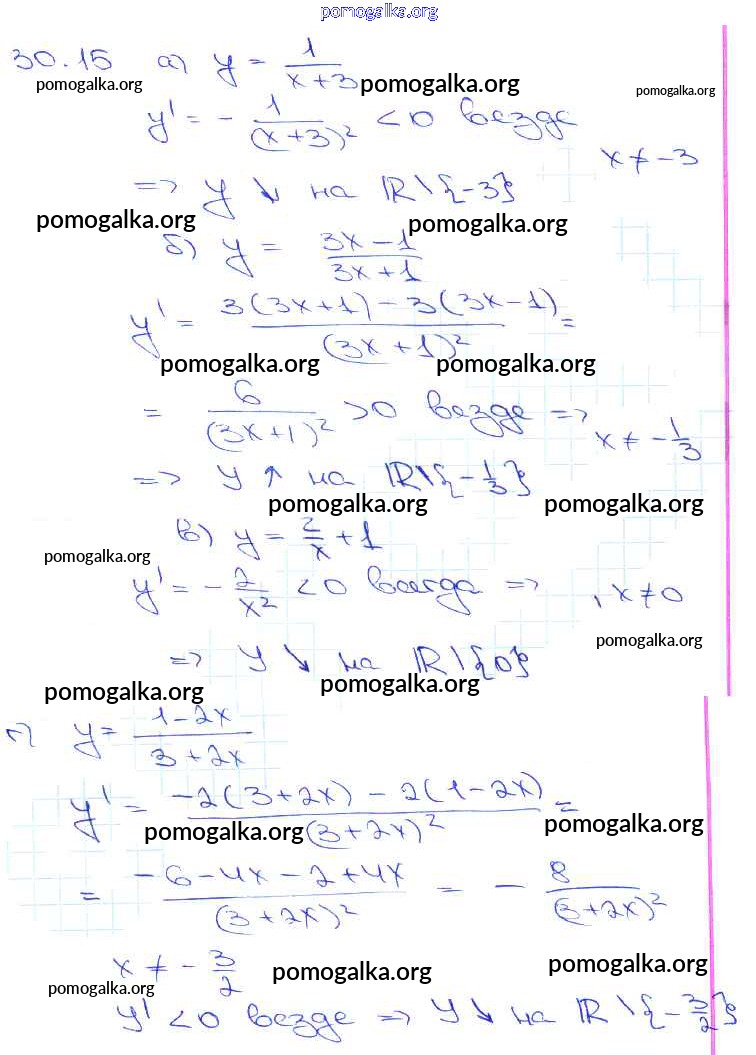 pomogalka.org
30.15 а) y = 1/(x+3)
pomogalka.org pomogalka.org pomogalka.org
y' = - 1/(x+3)² < 0 везде
x ≠ -3
=> y ↘ на ℝ\{-3}
pomogalka.org pomogalka.org
б) y = (3x-1)/(3x+1)
y' = (3(3x+1) - 3(3x-1))/(3x+1)² =
pomogalka.org pomogalka.org
= 6/(3x+1)² > 0 везде =>
x ≠ -1/3
=> y ↑ на ℝ\{-1/3}
pomogalka.org pomogalka.org
в) y = 2/x + 1
pomogalka.org
y' = - 2/x² < 0 всегда => , x ≠ 0
pomogalka.org
=> y ↘ на ℝ\{0}
pomogalka.org pomogalka.org
г) y = (1-2x)/(3+2x)
y' = (-2(3+2x) - 2(1-2x))/(3+2x)² =
pomogalka.org pomogalka.org
= (-6-4x-2+4x)/(3+2x)² = - 8/(3+2x)²
x ≠ - 3/2
pomogalka.org pomogalka.org
pomogalka.org
y' < 0 везде => y ↘ на ℝ\{-3/2}